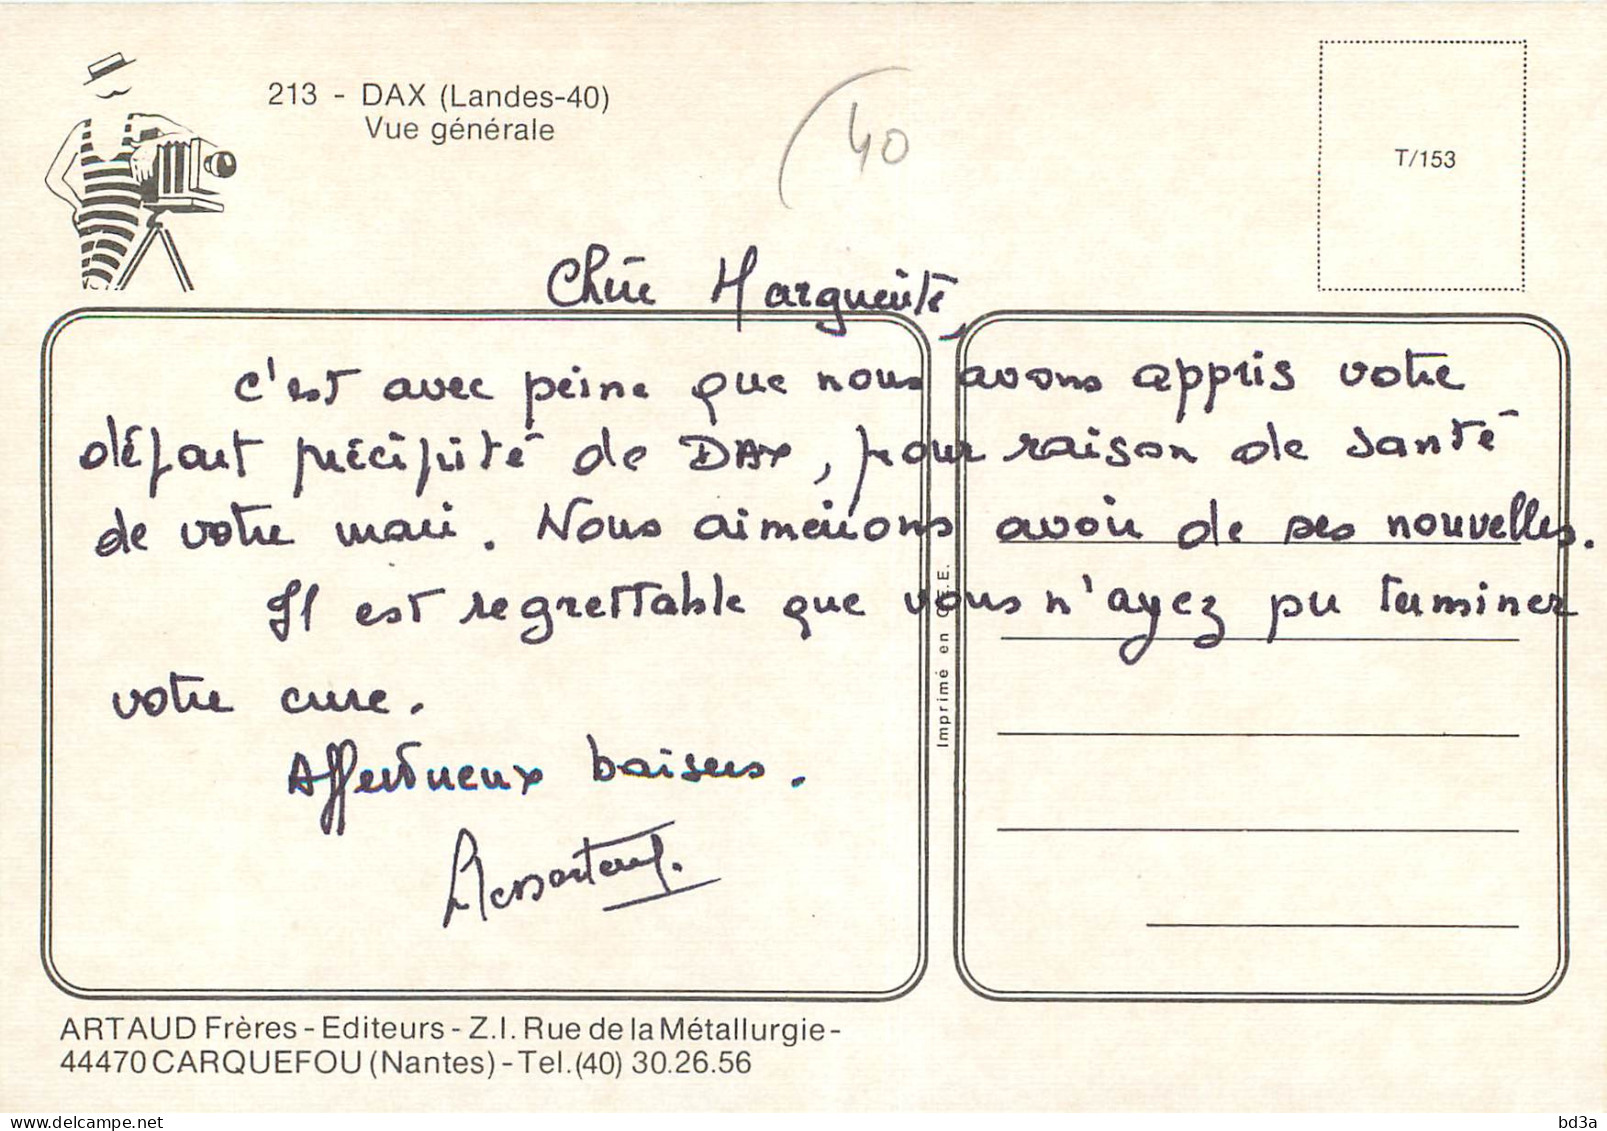 213 - DAX (Landes-40)
Vue générale
40
T/153
Chère Marguerite,
c'est avec peine que nous avons appris votre
départ précipité de DAX, pour raison de santé
de votre mari. Nous aimerions avoir de ses nouvelles.
Il est regrettable que vous n'ayez pu terminer
votre cure.
Affectueux baisers.
Imprimé en C.E.E.
ARTAUD Frères - Editeurs - Z.I. Rue de la Métallurgie -
44470 CARQUEFOU (Nantes) - Tel. (40) 30.26.56
delcampe.net
bd3a